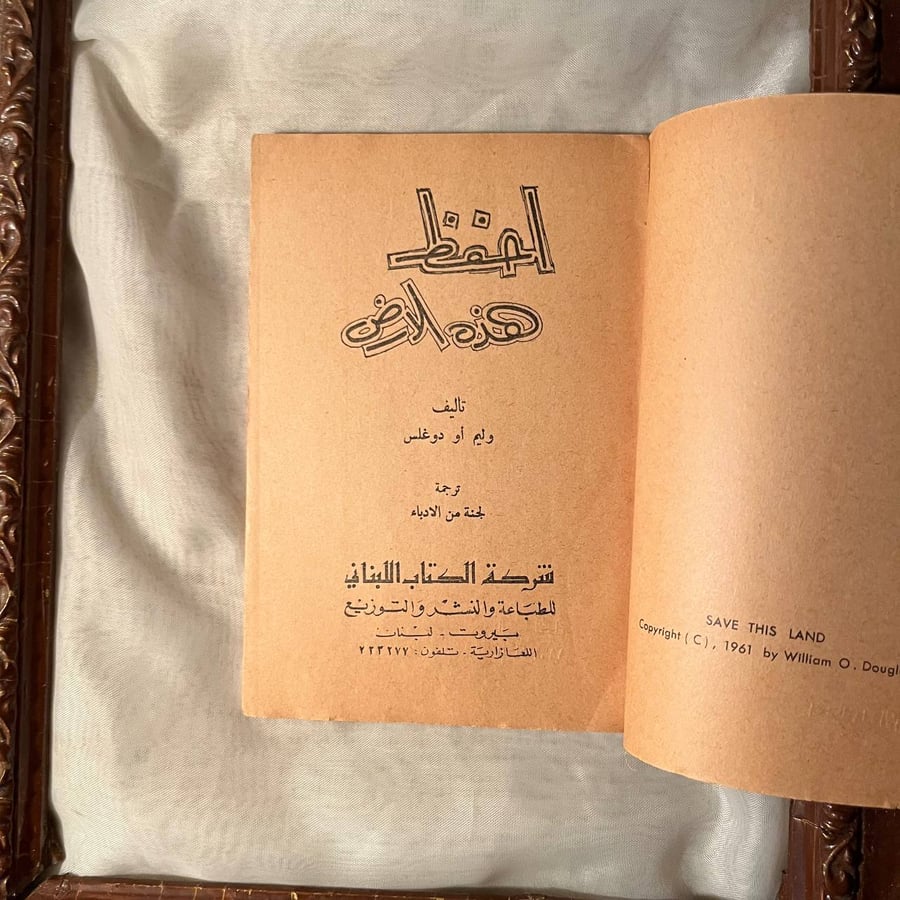 احفظ
هذه الارض
تأليف
وليم أو دوغلس
ترجمة
لجنة من الادباء
شركة الكتاب اللبناني
للطباعة والنشر والتوزيع
بيروت - لبنان
اللعازارية - تلفون : ٢٢٣٢٧٧
SAVE THIS LAND
Copyright ( C ) , 1961 by William O. Dougl